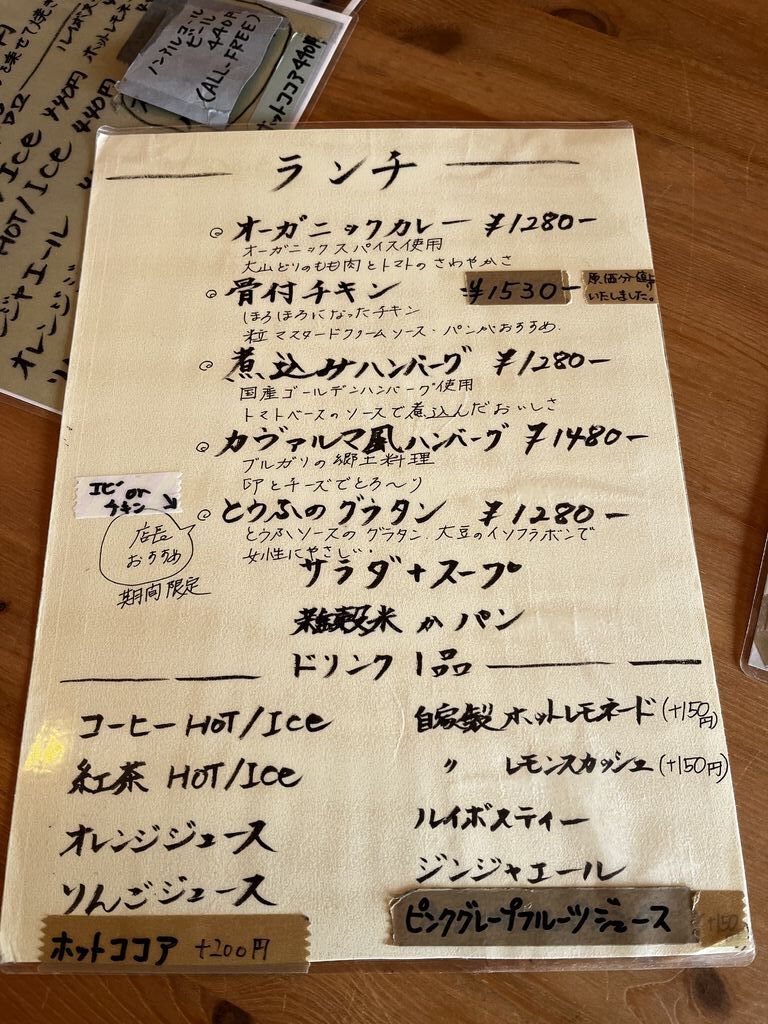 ノンアルコール
ビール
440円
(ALL-FREE)
ホットココア440円
ランチ
オーガニックカレー ¥1280-
オーガニックスパイス使用
大山どりのもも肉とトマトのさわやかさ
骨付チキン ¥1530-
原価分値上げ
いたしました。
ほろほろになったチキン
粒マスタードクリームソース・パンがおすすめ
煮込みハンバーグ ¥1280-
国産ゴールデンハンバーグ使用
トマトベースのソースで煮込んだおいしさ
カヴァルマ風ハンバーグ ¥1480-
ブルガリの郷土料理
卵とチーズでとろ〜り
エビ or
チキン
とうふのグラタン ¥1280-
とうふソースのグラタン、大豆のイソフラボンで
女性にやさしい・
店長
おすすめ
期間限定
サラダ+スープ
雑穀米 か パン
ドリンク 1品
コーヒー HOT/Ice
紅茶 HOT/Ice
オレンジジュース
りんごジュース
ホットココア +200円
自家製 ホットレモネード (+150円)
〃 レモンスカッシュ (+150円)
ルイボスティー
ジンジャエール
ピンクグレープフルーツジュース +150